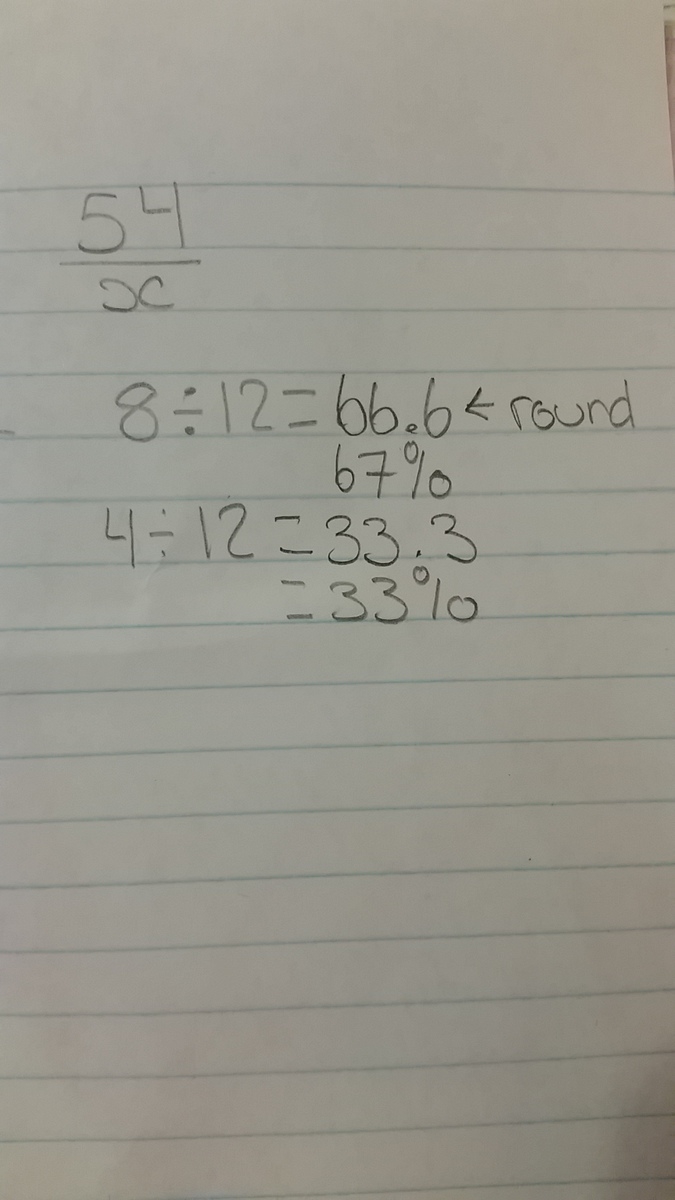 54
x
8÷12=66.6← round
67%
4÷12=33.3
=33%